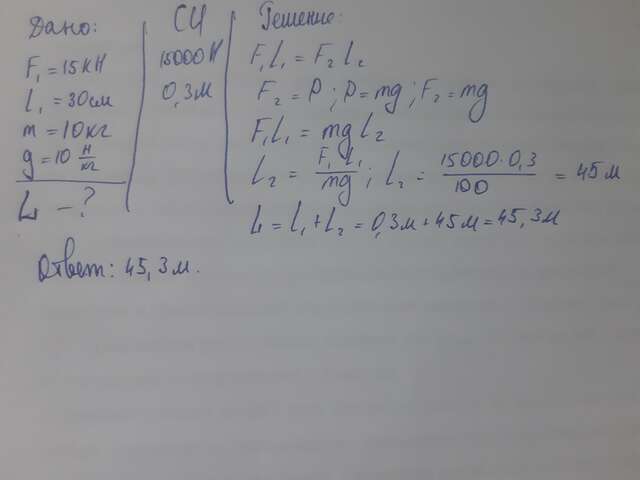 Дано:
F₁ = 15кН
l₁ = 30см
m = 10кг
g = 10 Н/кг
L - ?
СИ
15000Н
0,3м
Решение:
F₁l₁ = F₂l₂
F₂ = P ; P = mg ; F₂ = mg
F₁l₁ = mgl₂
l₂ = F₁l₁/mg ; l₂ = 15000·0,3/100 = 45м
L = l₁ + l₂ = 0,3м + 45м = 45,3м
Ответ: 45,3м.